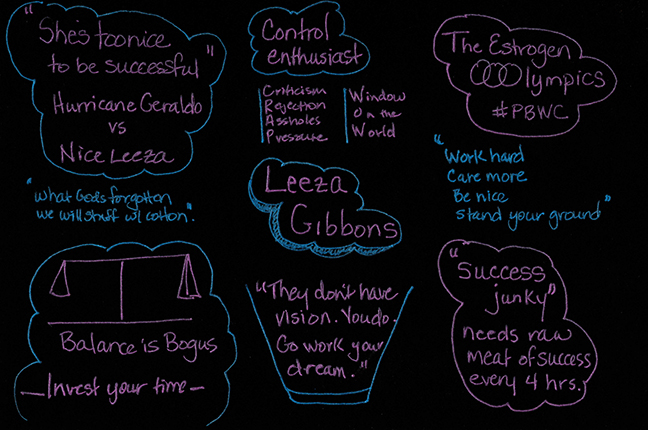 "She's too nice
to be successful"
Hurricane Geraldo
vs
Nice Leeza
"What God's forgotten
we will stuff w/ cotton."
Balance is Bogus
—Invest your time—
Control
enthusiast
Criticism
Rejection
Assholes
Pressure
Window
On the
World
Leeza
Gibbons
"They don't have
vision. You do.
Go work your
dream."
The Estrogen
Olympics
#PBWC
"Work hard
Care more
Be nice
Stand your ground"
"Success
junky"
needs raw
meat of success
every 4 hrs.